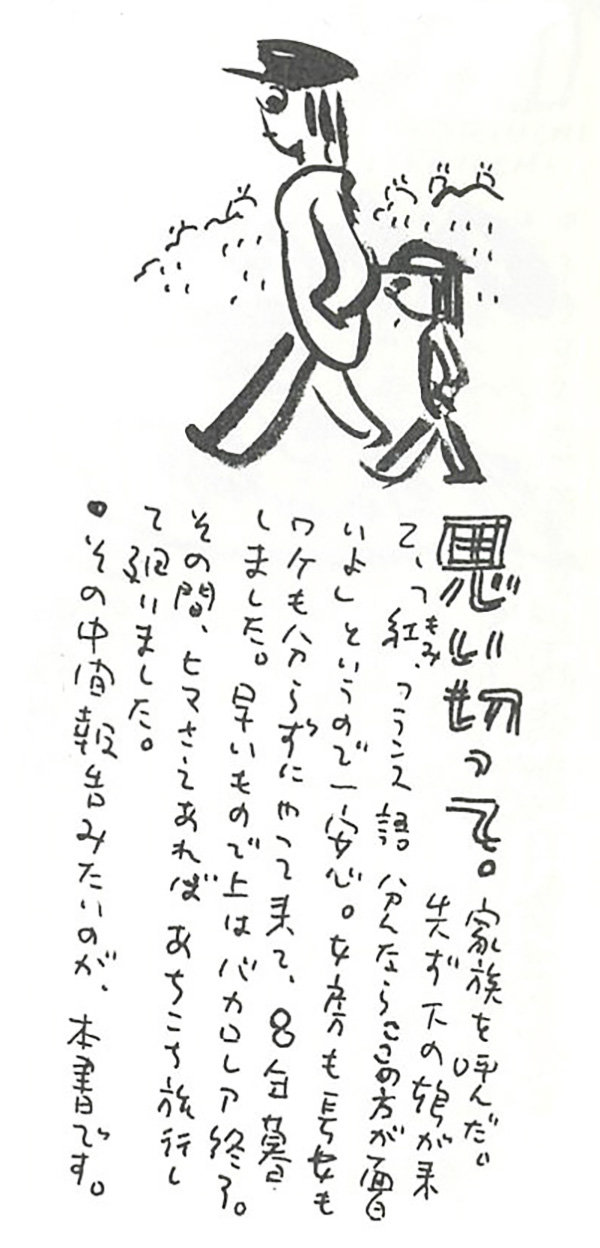 思い切って。家族を呼んだ。
先ず下の娘が来
て、「紅、フランス語分んならここの方が面白
もみ
いよ」というので一安心。女房も長女も
ワケも分らずにやって来て、8年暮
しました。早いもので上はバカロレア終了。
その間、ヒマさえあればあちこち旅行し
て廻りました。
●その中間報告みたいのが、本書です。